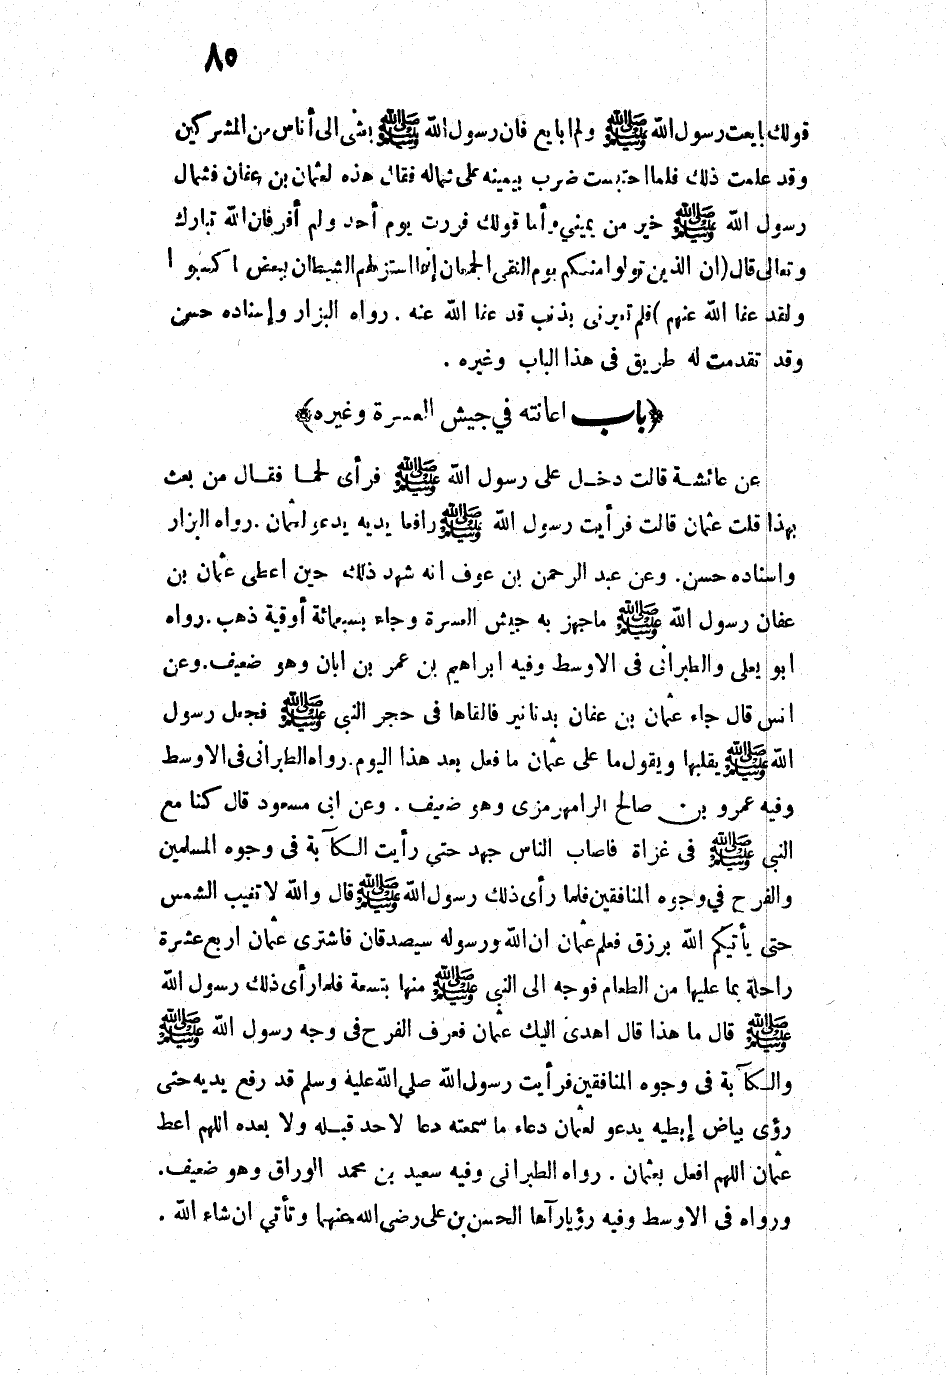 ٨٥
قولك بايعت رسول الله ﷺ ولم ابايع فان رسول الله ﷺ بعثنى الى أناس من المشركين
وقد علمت ذلك فلما احتبست ضرب بيمينه على شماله فقال هذه لعثمان بن عفان فشمال
رسول الله ﷺ خير من يميني وأما قولك فررت يوم أحد ولم أفر فان الله تبارك
وتعالى قال (ان الذين تولوا منكم يوم التقى الجمعان إنما استزلهم الشيطان ببعض ما كسبوا
ولقد عفا الله عنهم) فلم تعيرنى بذنب قد عفا الله عنه . رواه البزار وإسناده حسن
وقد تقدمت له طريق فى هذا الباب وغيره .
﴿باب اعانته في جيش العسرة وغيره﴾
عن عائشة قالت دخل على رسول الله ﷺ فرأى لحما فقال من بعث
بهذا قلت عثمان قالت فرأيت رسول الله ﷺ رافعا يديه يدعو لعثمان . رواه البزار
واسناده حسن. وعن عبد الرحمن بن عوف انه شهد ذلك حين اعطى عثمان بن
عفان رسول الله ﷺ ماجهز به جيش العسرة وجاء بسبعمائة أوقية ذهب . رواه
ابو يعلى والطبرانى فى الاوسط وفيه ابراهيم بن عمر بن ابان وهو ضعيف . وعن
انس قال جاء عثمان بن عفان بدنانير فالقاها فى حجر النبي ﷺ فجعل رسول
الله ﷺ يقلبها ويقول ما على عثمان ما فعل بعد هذا اليوم. رواه الطبرانى فى الاوسط
وفيه عمرو بن صالح الرامهرمزى وهو ضعيف . وعن ابى مسعود قال كنا مع
النبي ﷺ فى غزاة فاصاب الناس جهد حتي رأيت الكآبة فى وجوه المسلمين
والفرح في وجوه المنافقين فلما رأى ذلك رسول الله ﷺ قال والله لا تغيب الشمس
حتى يأتيكم الله برزق فعلم عثمان ان الله ورسوله سيصدقان فاشترى عثمان اربع عشرة
راحلة بما عليها من الطعام فوجه الى النبي ﷺ منها بتسعة فلما رأى ذلك رسول الله
ﷺ قال ما هذا قال اهدى اليك عثمان فعرف الفرح فى وجه رسول الله ﷺ
والكآبة فى وجوه المنافقين فرأيت رسول الله صلي الله عليه وسلم قد رفع يديه حتى
رؤى بياض إبطيه يدعو لعثمان دعاء ما سمعته دعا لاحد قبله ولا بعده اللهم اعط
عثمان اللهم افعل بعثمان . رواه الطبرانى وفيه سعيد بن محمد الوراق وهو ضعيف.
ورواه فى الاوسط وفيه رؤيا رآها الحسن بن على رضى الله عنهما وتأتي ان شاء الله .